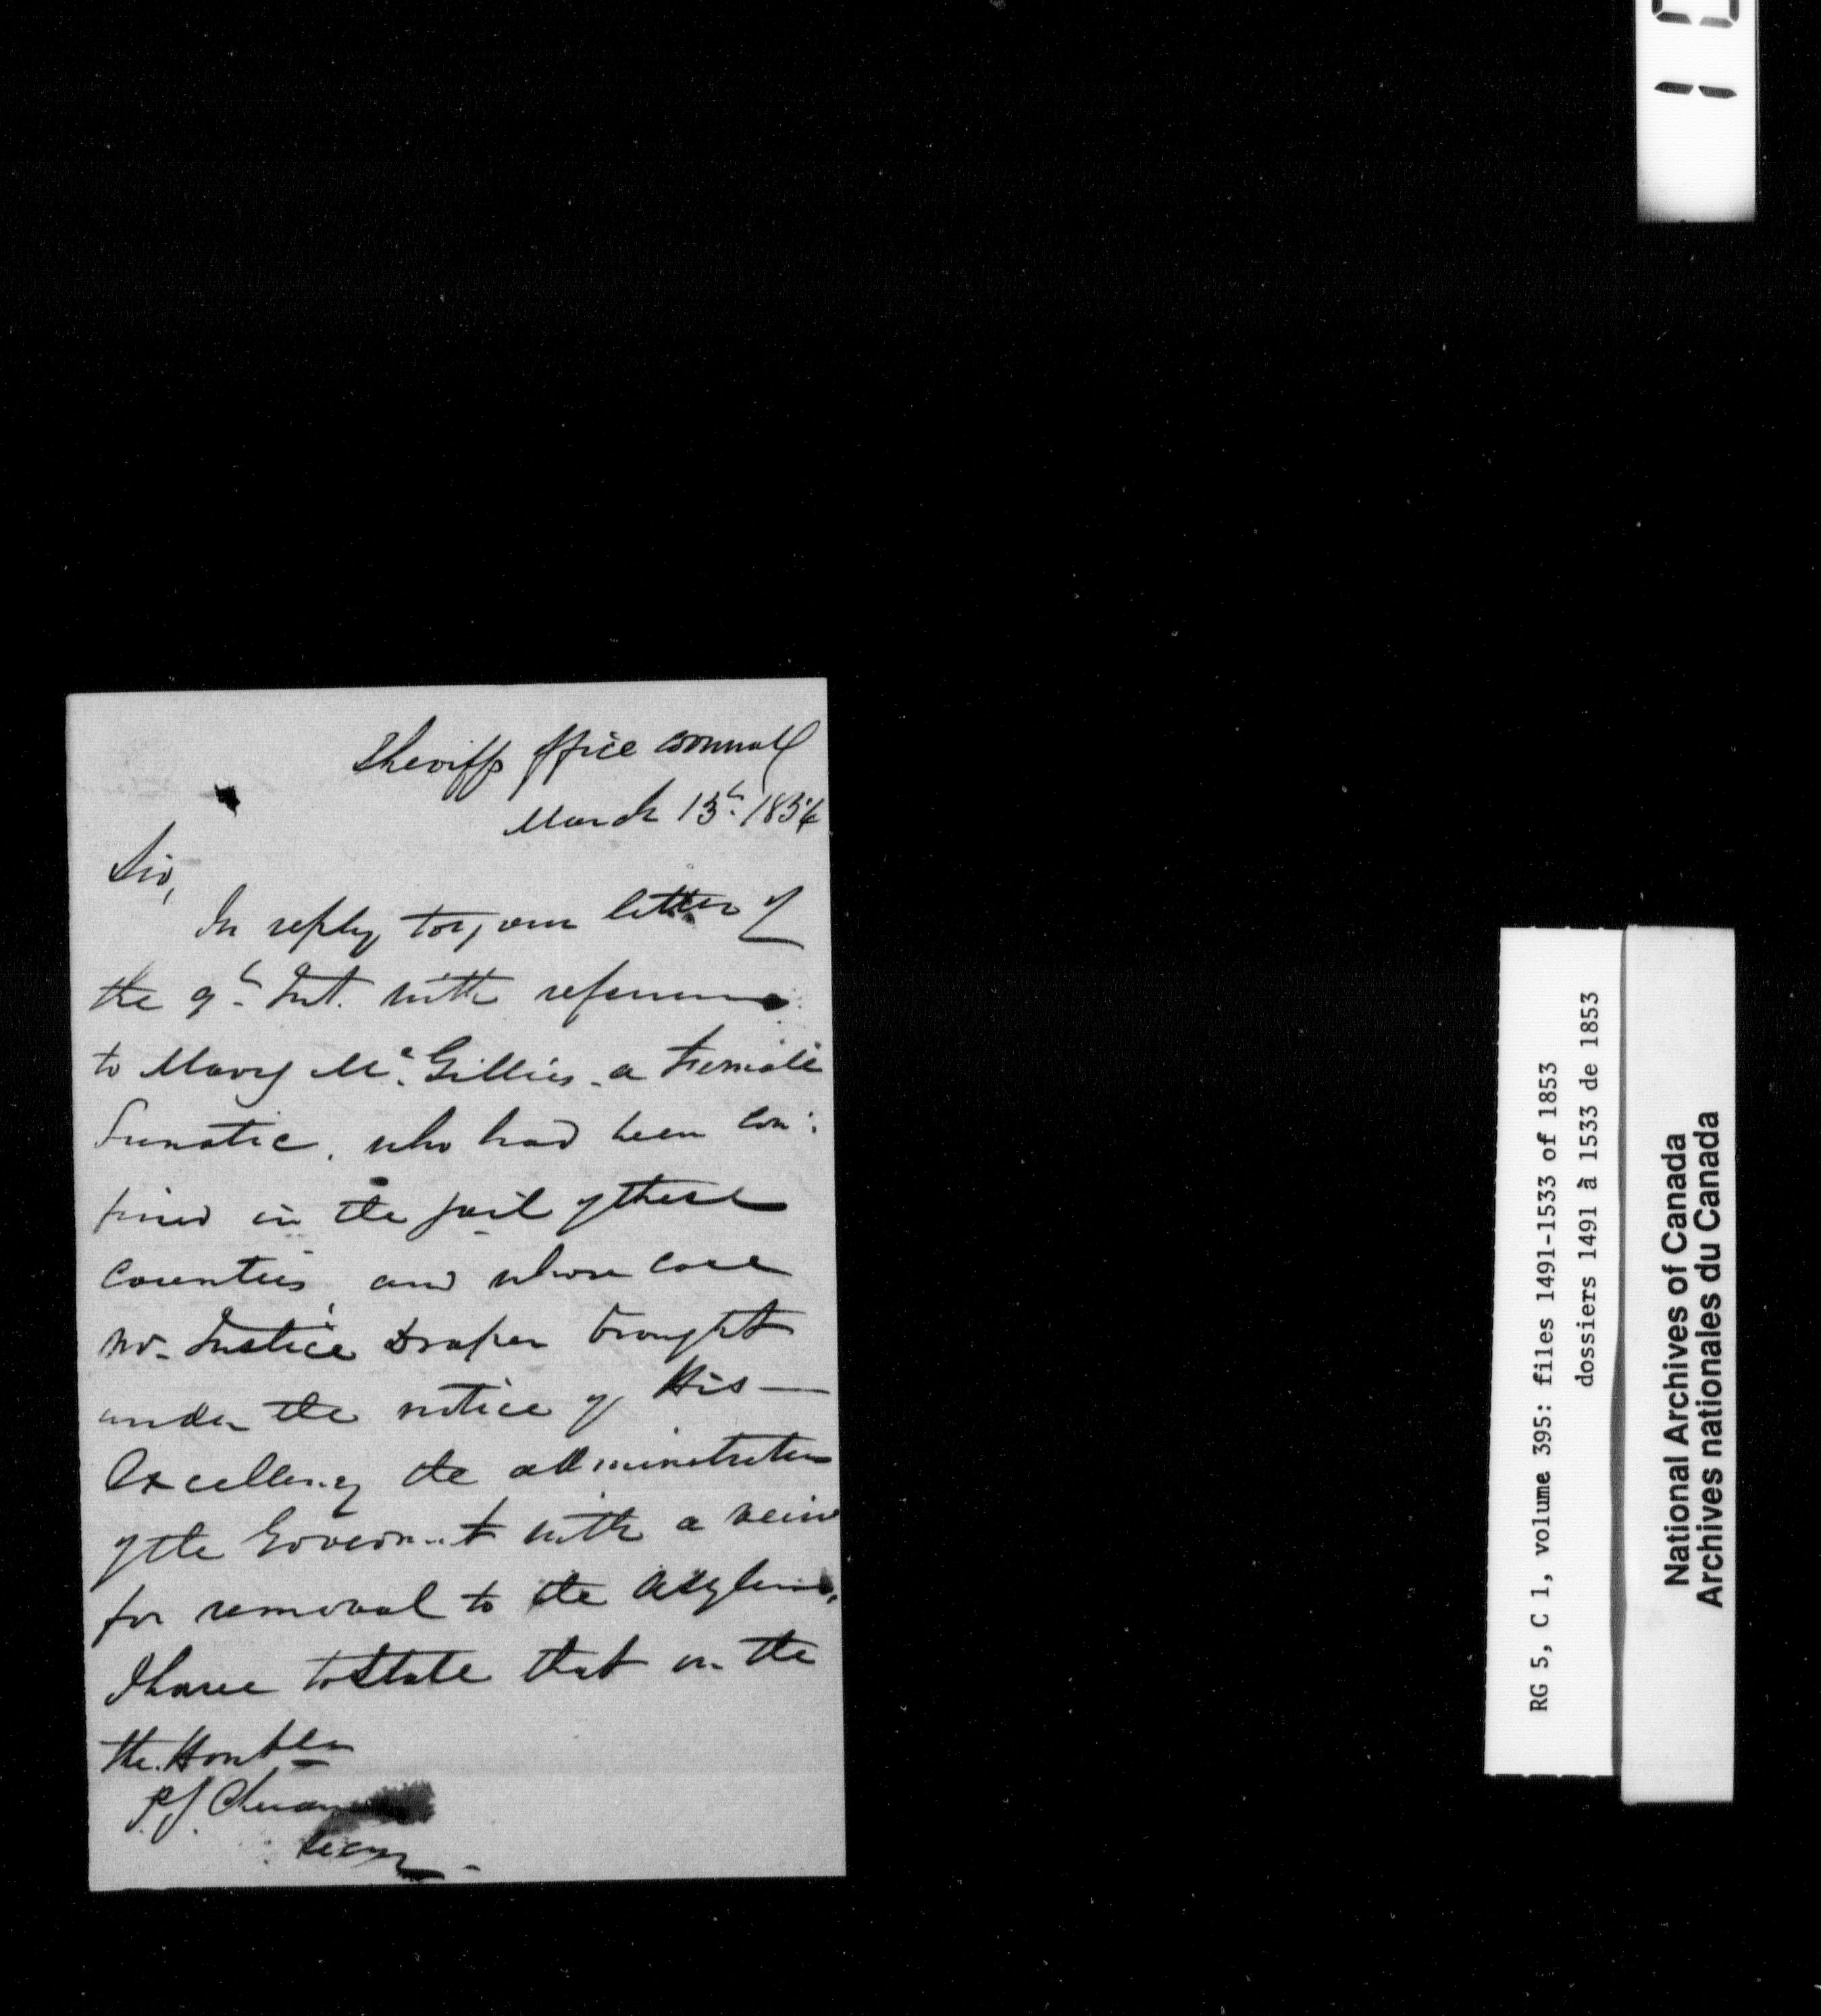 Sheriffs office Cornwall
March 13th 1854
Sir,
In reply to your letter of
the 9th Inst. with reference
to Mary McGillies - a Female
Lunatic, who had been con:
fined in the jail of these
Counties, and whose case
Mr. Justice Draper brought
under the notice of His —
Excellency the administrator
of the Government with a veiw
for removal to the Asylum.
I have to state that on the
The. Honble
P J
Secy -
RG 5, C 1, volume 395: files 1491-1533 of 1853
dossiers 1491 à 1533 de 1853
National Archives of Canada
Archives nationales du Canada